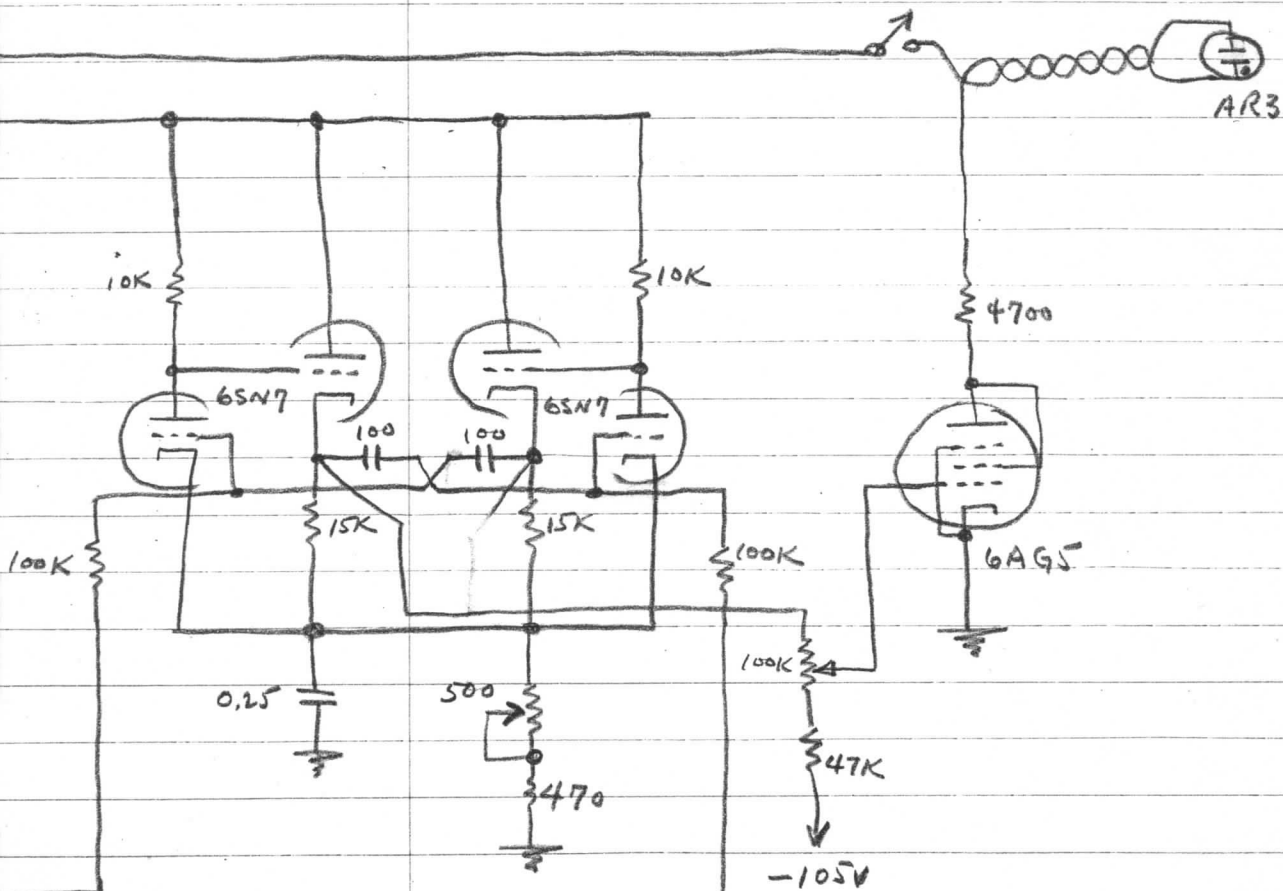 AR3
10K
10K
4700
6SN7
6SN7
100
100
15K
15K
100K
100K
6AG5
100K
0.25
500
47K
470
-105V